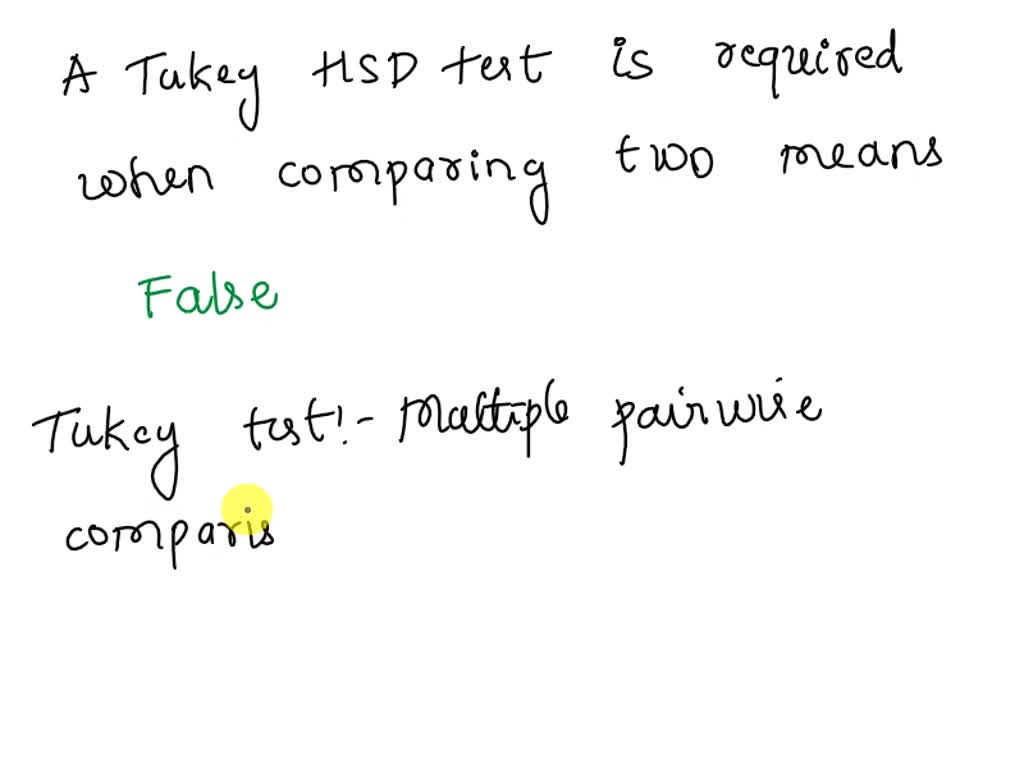 A Tukey HSD test is required
when comparing two means
False
Tukey test:- Multiple pairwise
comparis